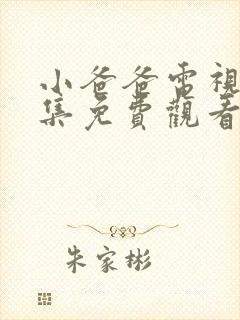 小爸爸電視
集免費觀看
朱家彬